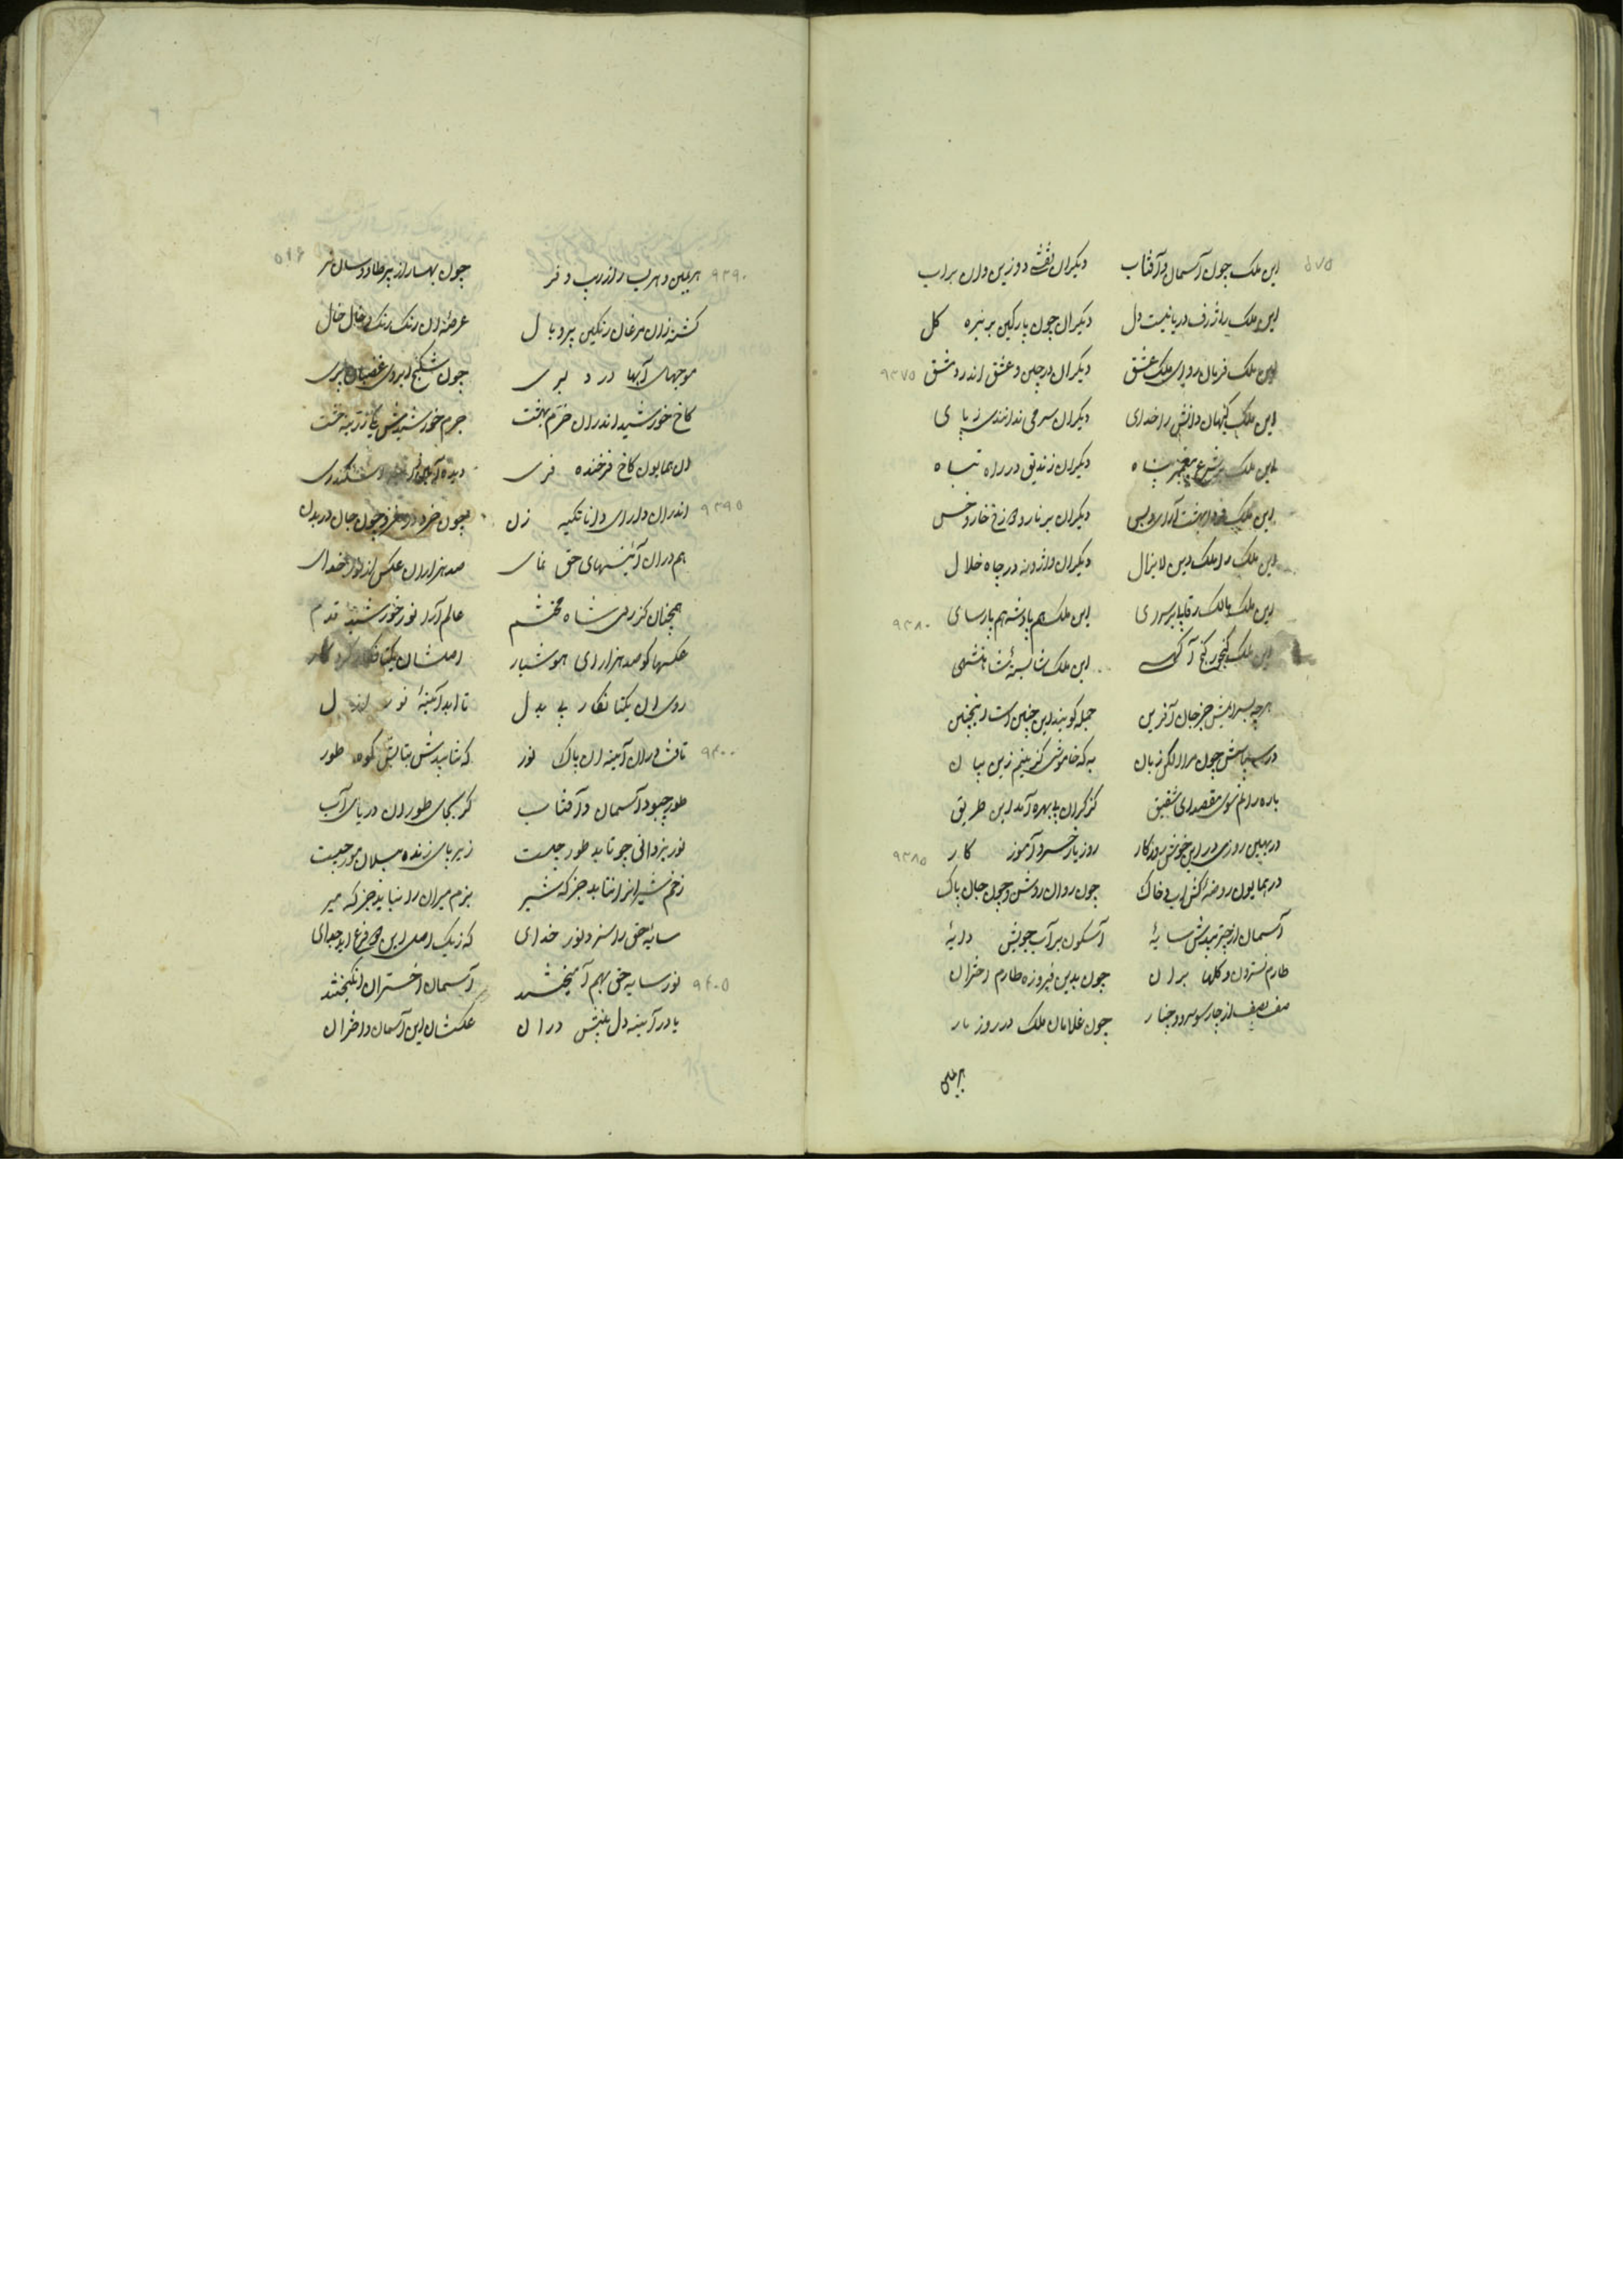 این ملک چون آسمان و آفتاب دیگران نقش دو زین وان بر آب
این ملک را ژرف دریائیست دل دیگران چون پارگین پر تیره گل
این ملک فرمان روای ملک عشق دیگران در چین و عشق اندر دمشق ۹۳۷۵
این ملک کیهان دانش را خدای دیگران سر می ندانندی ز پای
این ملک بر شرع پیغمبر پناه دیگران زندیق در راه تباه
این ملک فردا بهشت آرا و بس دیگران بر نار دوزخ خار و خس
این ملک را ملک دین لایزال دیگران واژونه در چاه ضلال
این ملک مالک رقاب سروری این ملک هم پادشه هم پارسای ۹۳۸۰
این ملک گنجور گنج آگهی این ملک شایسته شاهنشهی
هر چه بسرایمش جز جان آفرین جمله گویند این چنین است اینچنین
در سپاسش چون مرا لکن زبان به که خاموشی گزینم زین بیان
باره رانم سوی مقصد ای شفیق کز کران بی بهره آمد این طریق
در بهین روزی در این خوش روزگار روز بازار خرد آموز کار ۹۳۸۵
در همایون روضه کش آب و خاک چون روان روشن و چون جان پاک
آسمان از چتر بیدش سایهٔ آسگون بر آب جویش دایهٔ
طارم نسترون و گلها بران چون بدین فیروزه طارم اختران
صف بصف از چار سو سرو و چنار چون غلامان ملک در روز بار
بر یمین
۹۳۹۰ بر یمین و بر یسار از زیب و فر چون بهار از پر طاووسان نر
گشته زان مرغان رنگین پر و بال عرصهٔ ان رنگ رنگ و خال خال
موجهای آبها در دلبری چون شکنج ابروی غضبان پری
کاخ خورشید اندران خرم بهشت جرم خورشیدش یکی زرینه خشت
ان همایون کاخ فرخنده فری دیده آیین سکندری
۹۳۹۵ اندران دارای دانا تکیه زن چون خرد در مغز و چون جان در بدن
هم دران آئینهای حق نمای صد هزاران عکس از نور خدای
همچنان کز روی شاه محتشم عالم آرا نور خورشید قدم
عکسها کو صد هزار ای هوشیار اصلشان یکتا نگار کردگار
روی ان یکتا نگار بی بدل تا ابد آئینهٔ نور ازل
۹۴۰۰ تافت دران آینه ان پاک نور که نتابیدش بتابش کوه طور
طور چبود آسمان و آفتاب گر بجای طور ان دریای آب
نور یزدانی چو تابد طور چیست زیر پای زنده پیلان مور چیست
زخم شیر انرا نتابد جز که شیر بزم میران را نیابد جز که میر
سایهٔ حق را سزد نور خدای که ز یک اصل این دو فرع اید بجای
۹۴۰۵ نور سایه حق بهم آمیختند آسمان اختران انگیختند
یا در آیینه دل بینش دران عکسشان این آسمان و اختران